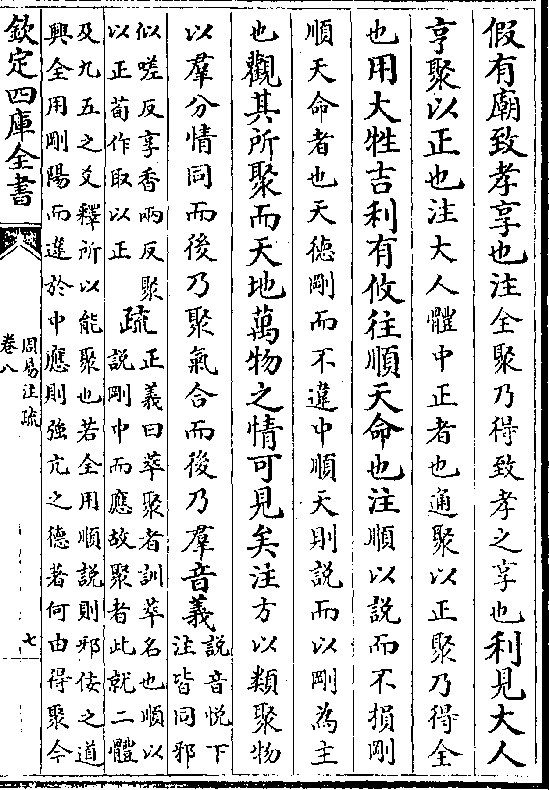 假有廟致孝享也注全聚乃得致孝之享也利見大人
亨聚以正也注大人體中正者也通聚以正聚乃得全
也用大牲吉利有攸往順天命也注順以說而不損剛
順天命者也天德剛而不違中順天則說而以剛為主
也觀其所聚而天地萬物之情可見矣注方以類聚物
以羣分情同而後乃聚氣合而後乃羣音義
說音悅下
注皆同邪
似嗟反享香兩反聚
以正荀作取以正
疏
正義曰萃聚者訓萃名也順以
說剛中而應故聚者此就二體
及九五之爻釋所以能聚也若全用順說則邪佞之道
興全用剛陽而違於中應則強亢之德著何由得聚今
欽定四庫全書
周易注疏
卷八
七